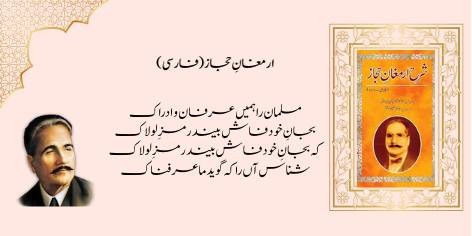 ارمغانِ حجاز(فارسی)
مسلماں را ہمیں عرفان و ادراک
بجانِ خود فاش بیند رمزِ لولاک
کہ بجانِ خود فاش بیند رمزِ لولاک
شناس آں را کہ گوید ما عرفناک
شرح ارمغانِ حجاز